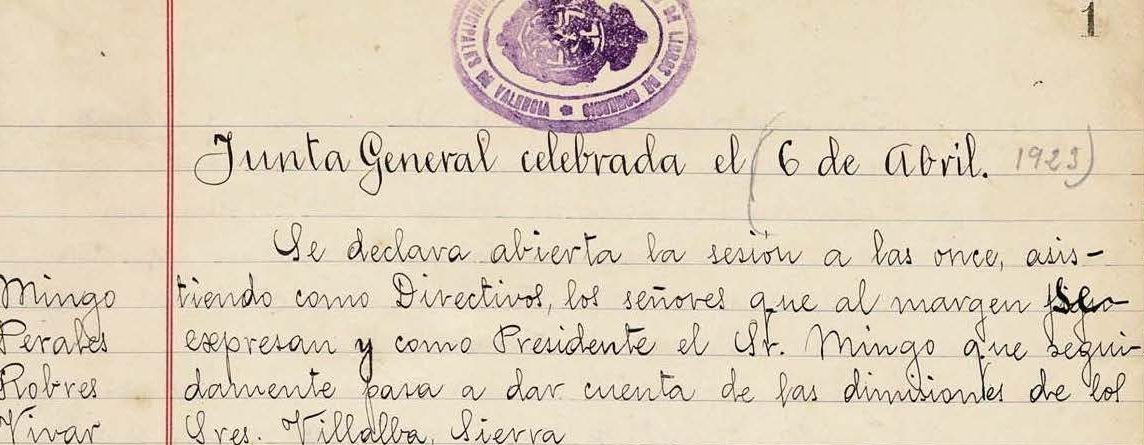 1
Junta General celebrada el (6 de Abril. 1929)
Se declara abierta la sesión a las once, asis-
tiendo como Directivos, los señores que al margen se
expresan y como Presidente el Sr. Mingo que segui-
damente pasa a dar cuenta de las dimisiones de los
Sres. Villalba, Sierra
Mingo
Perales
Robres
Vivar
VALENCIA